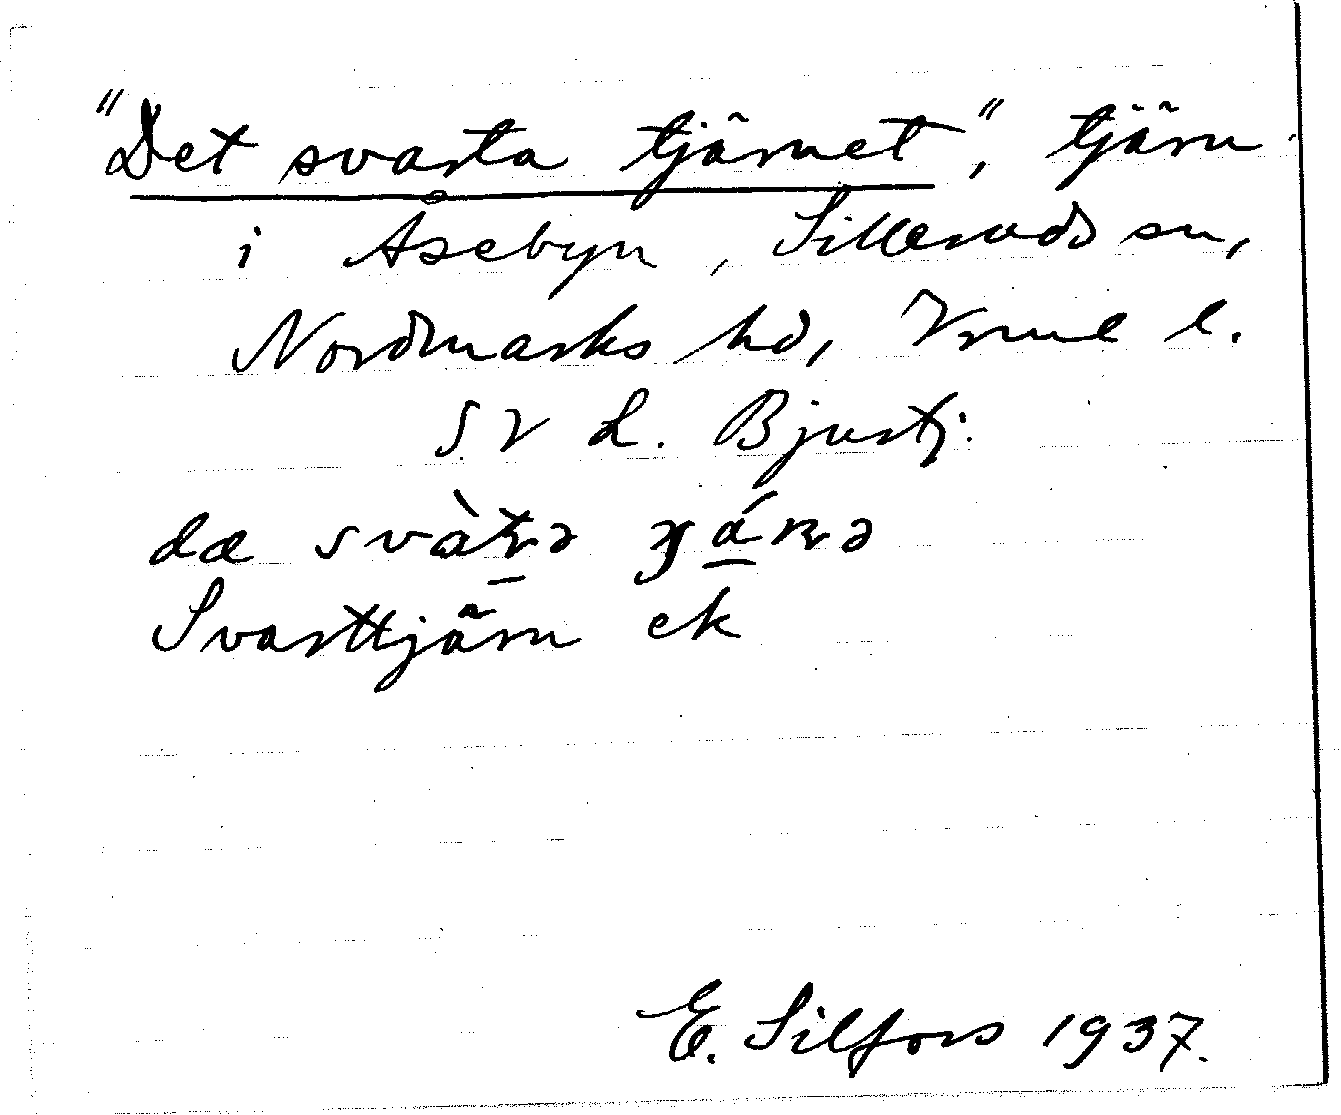 "Det svarta tjärnet", tjärn
i Åsebyn, Silleruds sn,
Nordmarks hd, Vrml l.
SV L. Bjustj.
dæ svàtə
Svarttjärn ek
E. Silfors 1937.